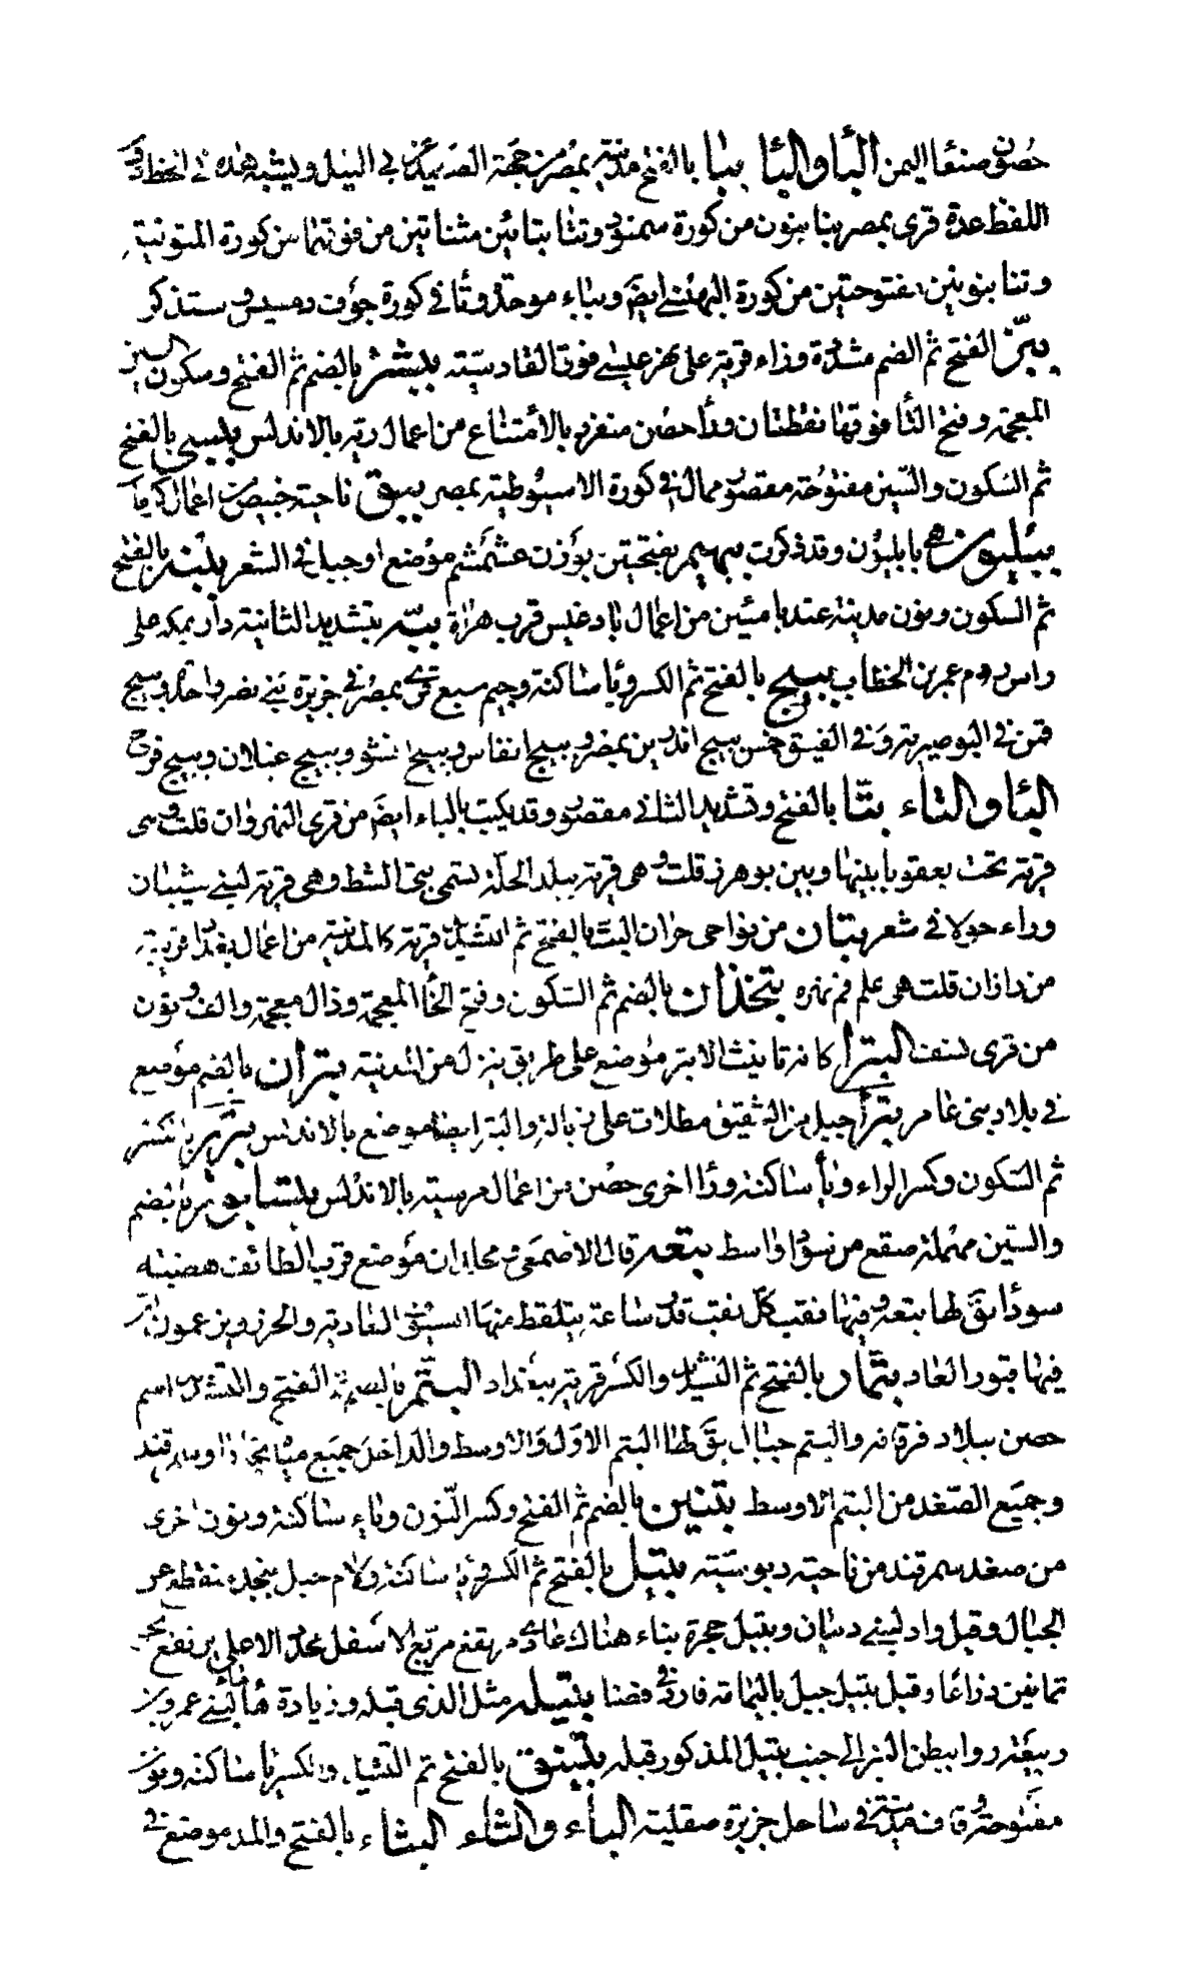 حصون صنعا اليمن البا والبا ببا بالفتح مدينة بمصر من جهة الصعيد غربي النيل ويشبه هذه في الخط وفي
اللفظ عدة قرى بمصر بنا بنون من كورة سمنود وتتا بتائين مثناتين من فوقهما من كورة المنوفية
وننا بنونين مفتوحتين من كورة البهنسي ايضا وبباء موحدة وقا في كورة جوف رمسيس وستذكر
ببز الفتح ثم الضم مشددة وزاء قرية على نهر عيسى فوق القادسية ببشتر بالضم ثم الفتح وسكون الشين
المعجمة وفتح التا فوقها نقطتان ورا حصن منفرد بالامتناع من اعمال رية بالاندلس ببسى بالفتح
ثم السكون والسين مفتوحة مقصور ممال في كورة الاسيوطية بمصر ببق ناحية خبيص من اعمال كرمان
ببليون هي بابليون وقد ذكرت ببمبم بفتحتين بوزن غشمشم موضع او جبل في الشعر ببنه بالفتح
ثم السكون ونون مدينة عند بامئين من اعمال بادغيس قرب هراة ببه بتشديد الثانية دار بمكة على
راس ردم عمر بن الخطاب ببيج بالفتح ثم الكسر ويا ساكنة وجيم سبع قرى بمصر في جزيرة بني نصر واحدة وببيج
قمن في البوصيرية وفي الفيوم خمس ببيج اندير بمصر وببيج انقاس وببيج انشو وببيج غيلان وببيج فرح
البا والتاء بتا بالفتح وتشديد الثاني مقصور وقد يكتب بالياء ايضا من قرى النهروان قلت وهي
قرية تحت بعقوبا بينها وبين بوهرز قلت وهي قرية ببلد الحلة تسمى بتى الشط وهي قرية لبني شيبان
وراء حولايا في شعر بتان من نواحي حران البت بالفتح ثم التشديد قرية كالمدينة من اعمال بغداد قريبة
من راذان قلت هي علم فم نهره بتخذان بالضم ثم السكون وفتح الخا المعجمة وذال معجمة والف ونون
من قرى نسف البترا كانه تانيث الابتر موضع على طريق ينزل من المدينة بتران بالضم موضع
في بلاد بني عامر بترا جبل من الشقيق مطلات على زبالة والبتر ايضا موضع بالاندلس بترير بالكسر
ثم السكون وكسر الراء ويا ساكنة ورا اخرى حصن من اعمال مرسية بالاندلس بتسابور بالضم
والسين مهملة صقع من سواد واسط بتعه قال الاصمعي محلدان موضع قرب الطائف هضبته
سودا يقال لها بتعه وفيها نقب كل نقب قدر ساعة يلتقط منها السيوف العادية والخرز ويزعمون ان
فيها قبورا لعاد بتمار بالفتح ثم التشديد والكسر قرية ببغداد البتم بالضم ثم الفتح والتشديد اسم
حصن ببلاد فرغانه والبتم جبال يقال لها البتم الاول والاوسط والداخل جميع مياه بخارا وسمرقند
وجميع الصغد من البتم الاوسط بتنين بالضم ثم الفتح وكسر النون وياء ساكنة ونون اخرى
من صغد سمرقند من ناحية دبوسية بتيل بالفتح ثم الكسر ويا ساكنة ولام جبل بنجد منقطع عن
الجبال وقيل واد لبني ذبيان وبتيل حجر بناء هناك عادي مرتفع مربع الاسفل محدد الاعلى يرتفع نحو
ثمانين ذراعا وقيل بتيل جبل باليمامة فارد في فضا بتيله مثل الذي قبله وزيادة ها ماء لبني عمرو بن
ربيعة رواببطن السر الى جنب بتيل المذكور قبله بتينق بالفتح ثم التشديد والكسر يا ساكنة ونون
مفتوحة وقاف مدينة في ساحل جزيرة صقلية الباء والثاء البثاء بالفتح والمد موضع في